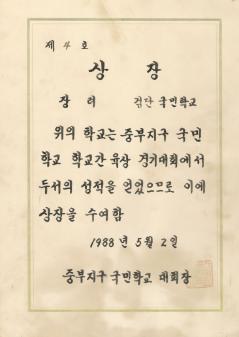 제 4 호
상 장
장 려 검단 국민학교
위의 학교는 중부지구 국민
학교 학간 육상 경기대회에서
두서의 성적을 얻었으므로 이에
상장을 수여함
1988 년 5 월 2 일
중부지구 국민학교 대회장